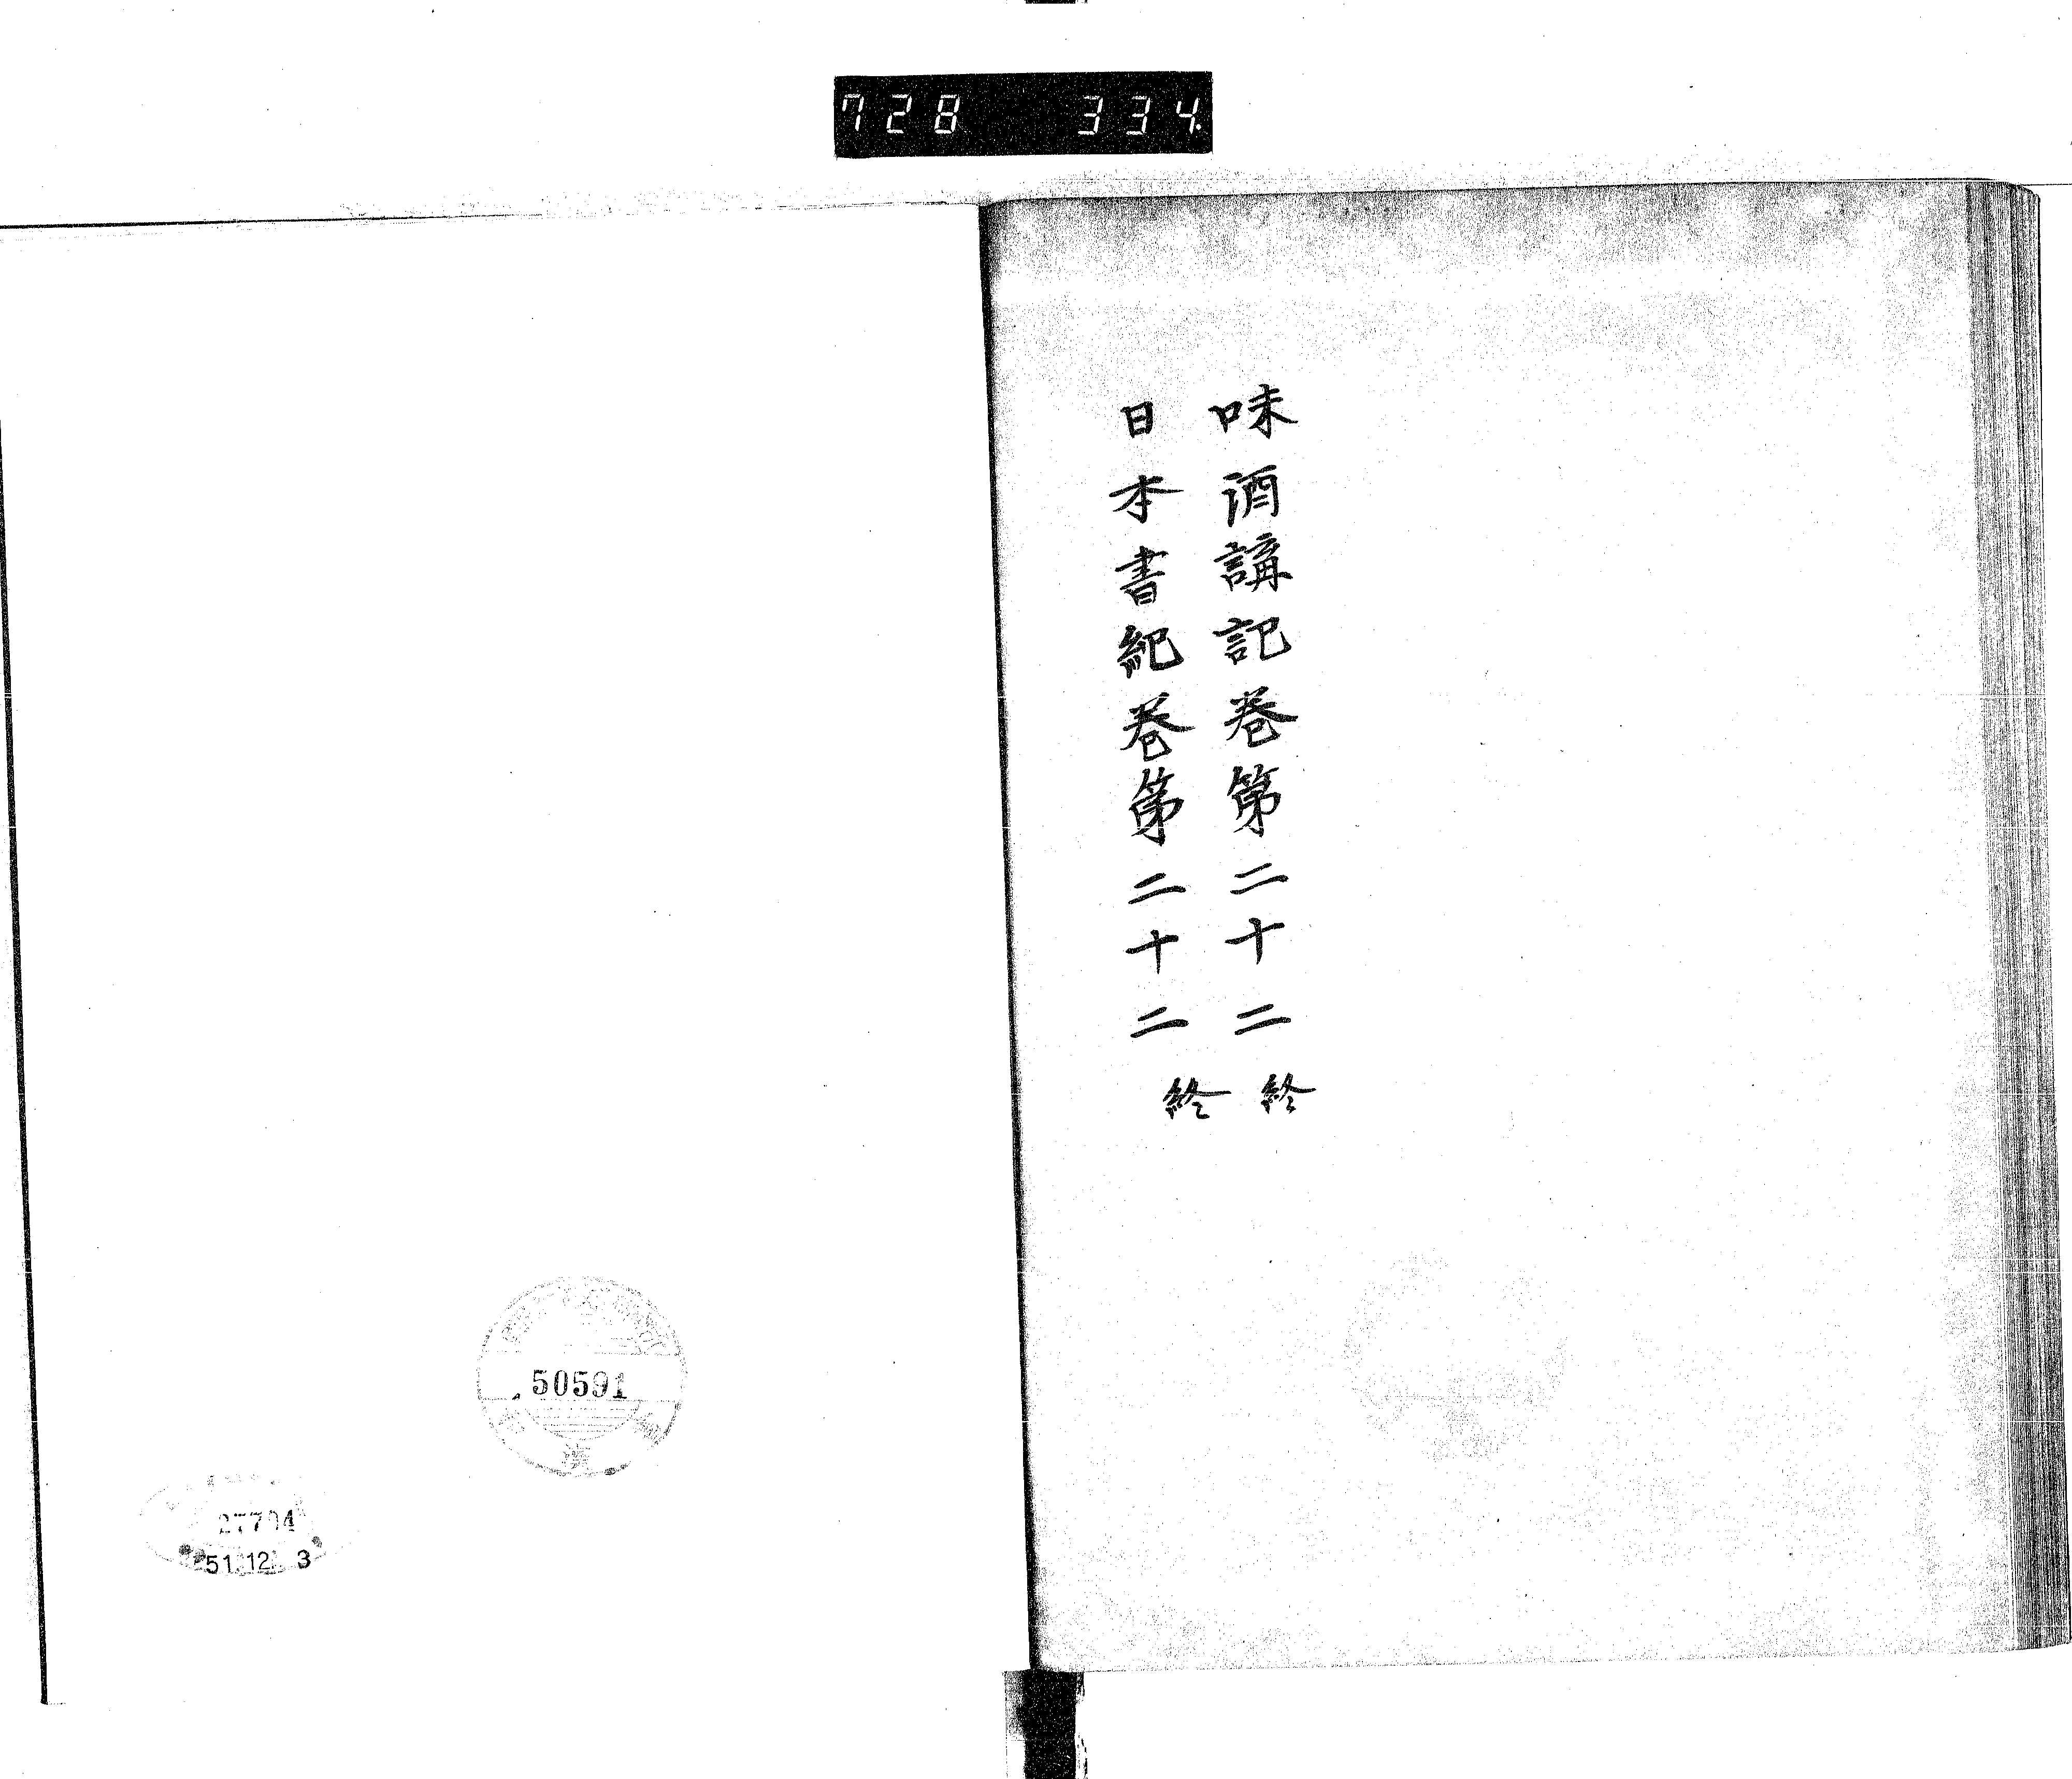 728 334.
味酒講記巻第二十二 終
日本書紀巻第二十二 終
50591
51.12. 3